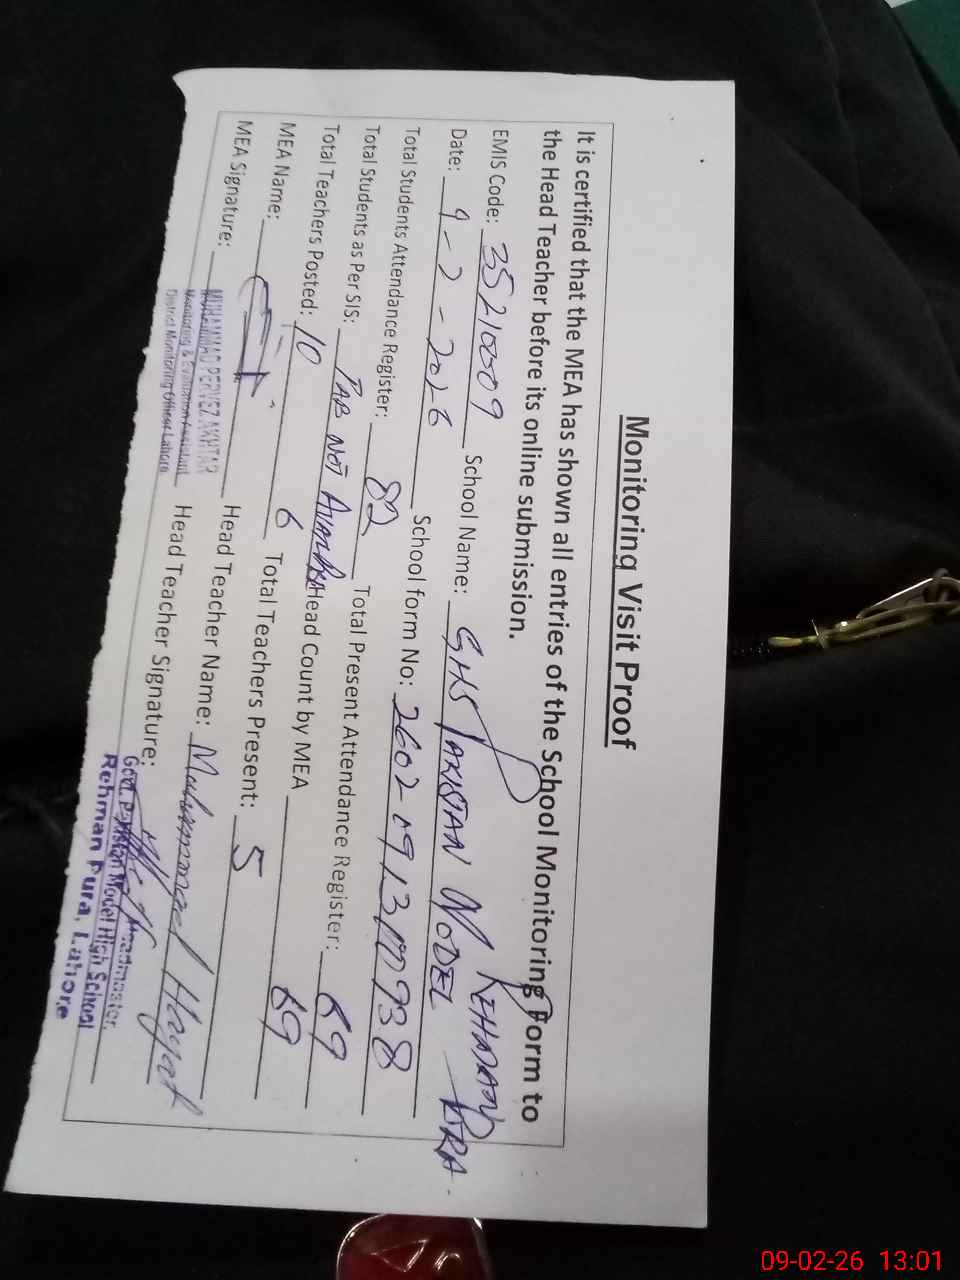 Monitoring Visit Proof
It is certified that the MEA has shown all entries of the School Monitoring Form to
the Head Teacher before its online submission.
EMIS Code: 35210009 School Name: GHS PAKISTAN MODEL REHMAN PURA
Date: 9-2-2026 School form No:
Total Students Attendance Register: 82 Total Present Attendance Register: 69
Total Students as Per SIS: TAB NOT Head Count by MEA 69
Total Teachers Posted: 10 6 Total Teachers Present: 5
MEA Name: Head Teacher Name: Muhammad Hayat
MEA Signature: Head Teacher Signature:
MUHAMMAD PERVEZ AKHTAR
Monitoring & Evaluation Assistant
District Monitoring Officer Lahore
Headmaster,
Govt. Pakistan Model High School
Rehman Pura, Lahore
09-02-26 13:01